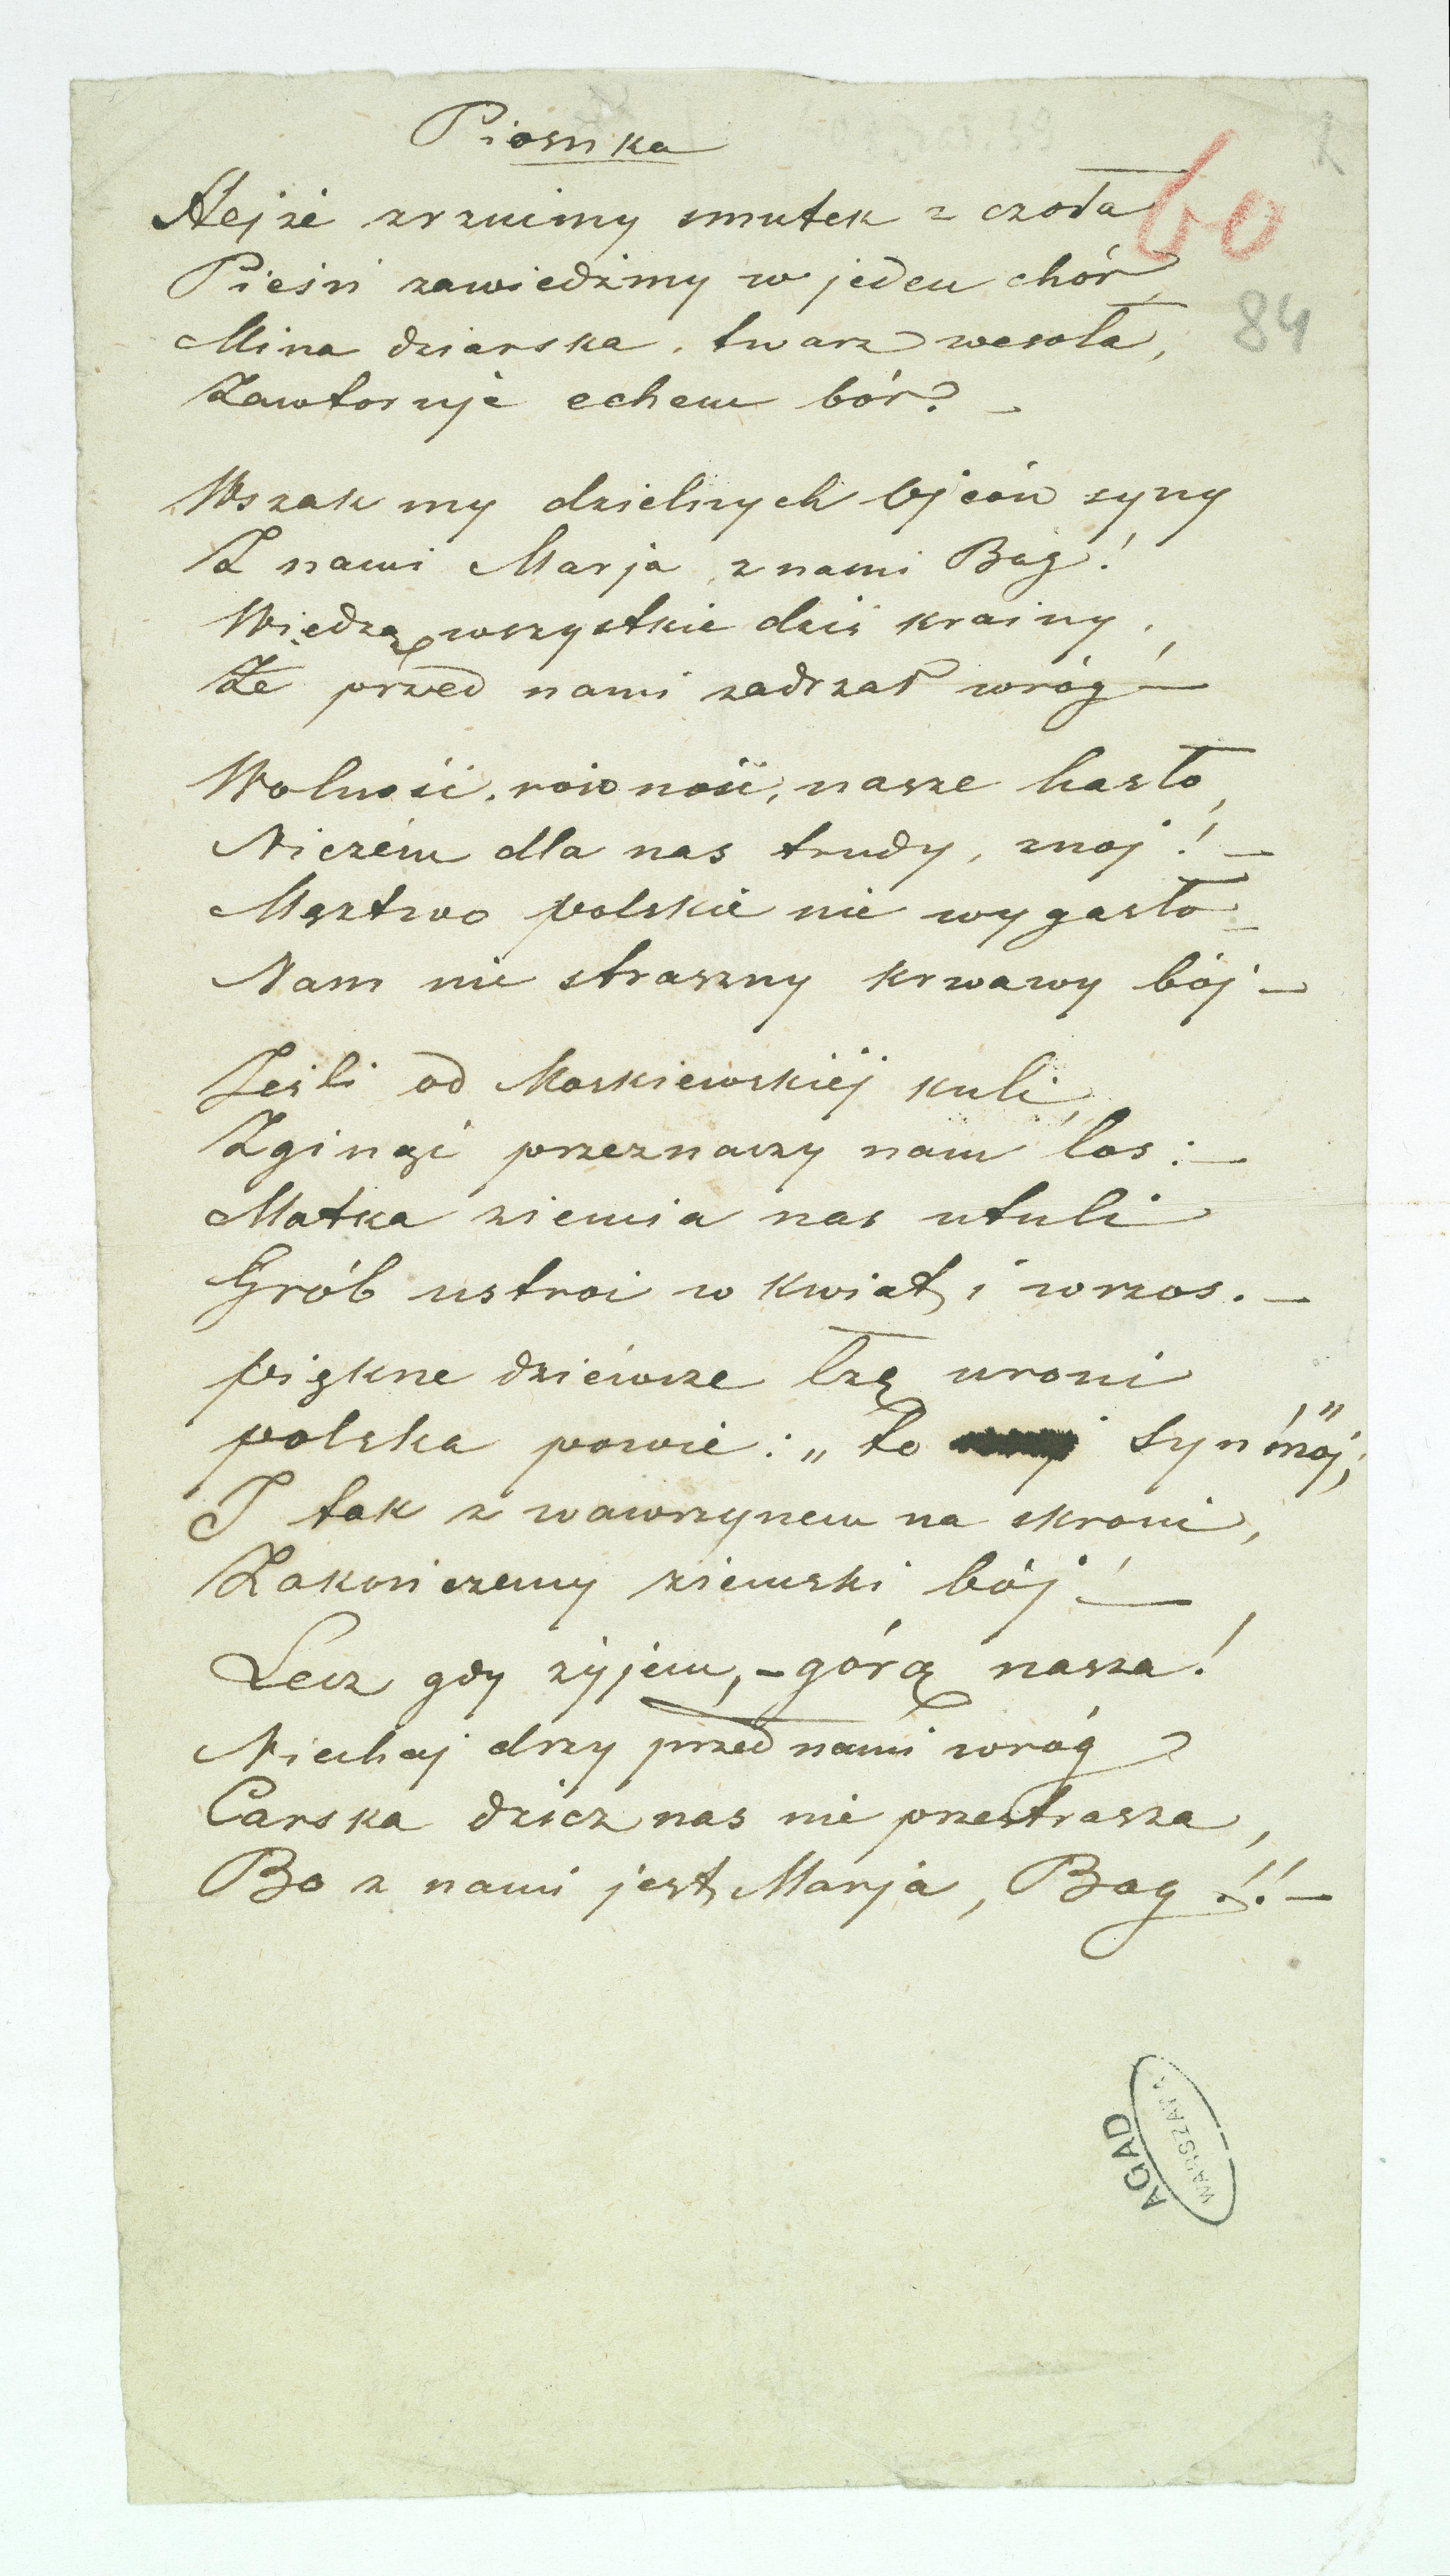 Piosnka
60
Hejże zrzućmy smutek z czoła
Pieśń zawiedźmy w jeden chór,
84
Mina dziarska, twarz wesoła,
Zawtoruje echem bór? –
Wszak my dzielnych ojców syny
Z nami Marja, z nami Bóg!
Wiedzą wszystkie dziś krainy,
Że przed nami zadrżał wróg! –
Wolność, równość, nasze hasło,
Niczém dla nas trudy, znój! –
Męztwo polskie nie wygasło –
Nam nie straszny krwawy bój –
Jeśli od Moskiewskiéj kuli,
Zginąć przeznaczy nam los: –
Matka ziemia nas utuli
Grób ustroi w kwiat, i wrzos. –
piękne dziéwcze łzę uroni
polska powie: „to syn mój,"
I tak z wawrzynem na skroni,
Zakończemy ziemski bój! –
Lecz gdy żyjem, – górą nasza!
Niechaj drży przed nami wróg
Carska dzicz nas nie przestrasza,
Bo z nami jest, Marja, Bóg!! –
AGAD
WARSZAWA